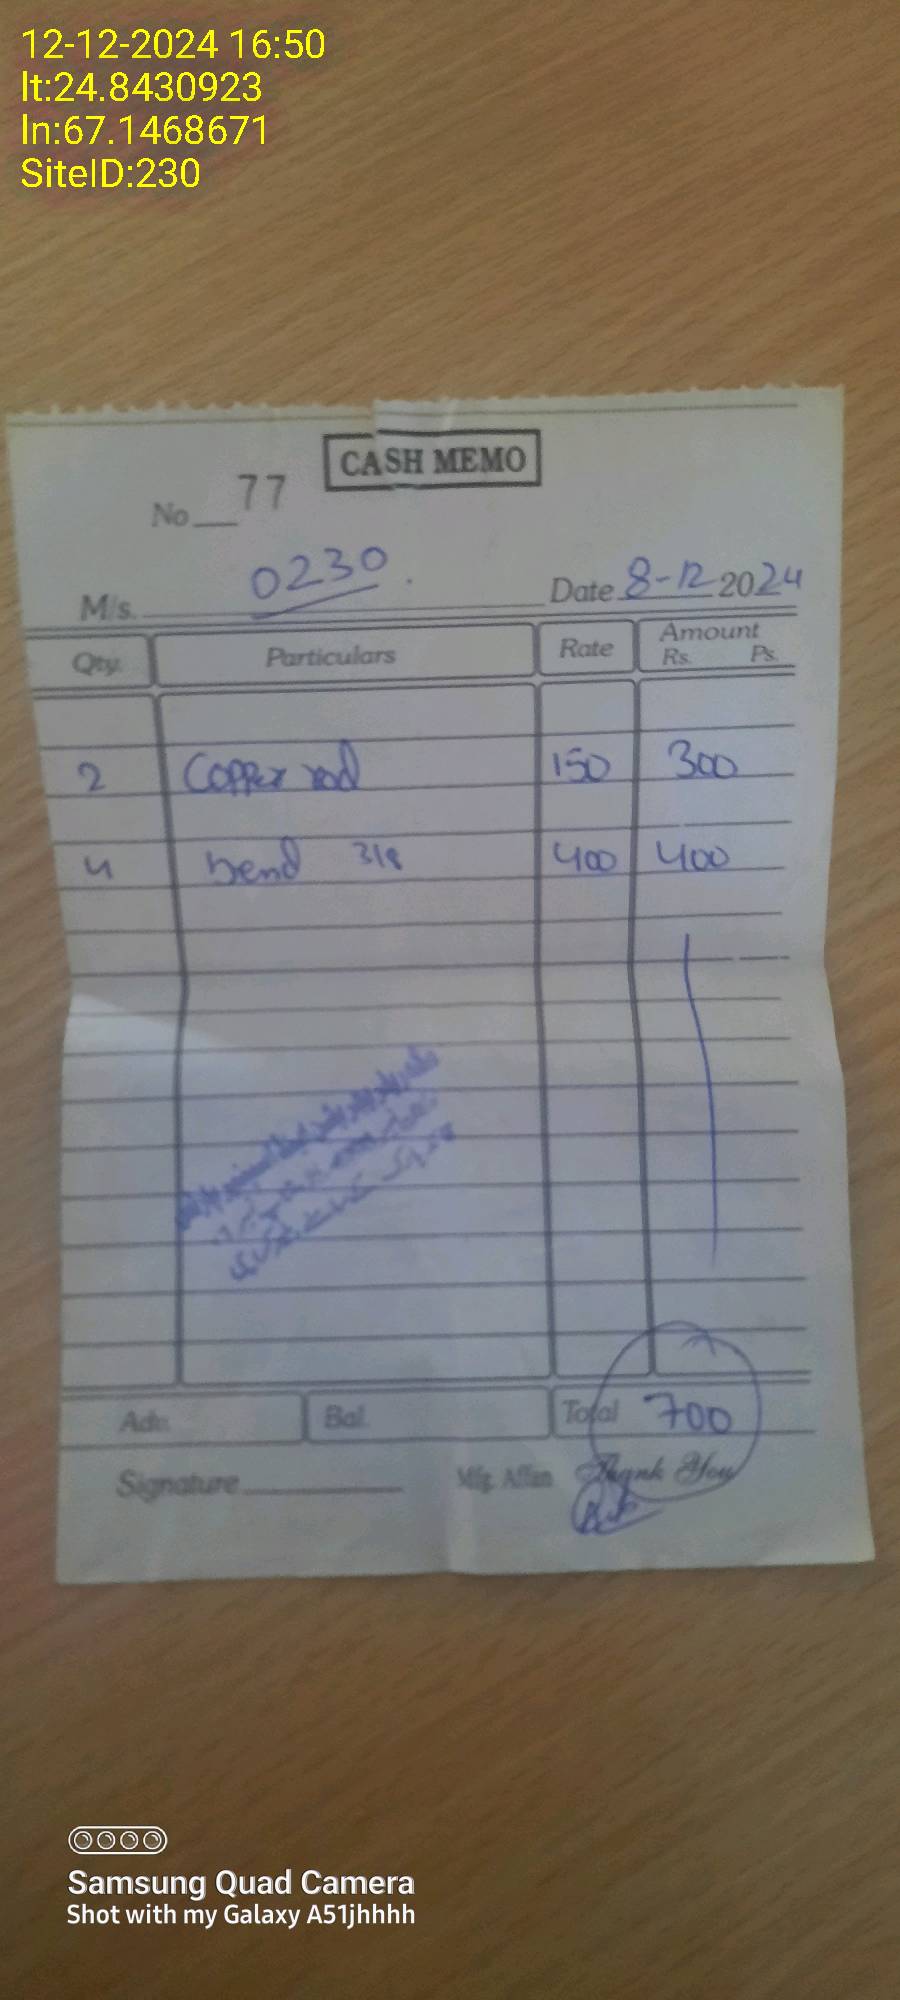 12-12-2024 16:50
lt:24.8430923
ln:67.1468671
SiteID:230
CASH MEMO
No 77
M/s. 0230 Date 8-12 2024
Qty. Particulars Rate Amount
Rs. Ps.
2 Copper rod 150 300
4 bend 3/8 400 400
Adv. Bal. Total 700
Signature Mfg. Affan Thank You
Samsung Quad Camera
Shot with my Galaxy A51jhhhh